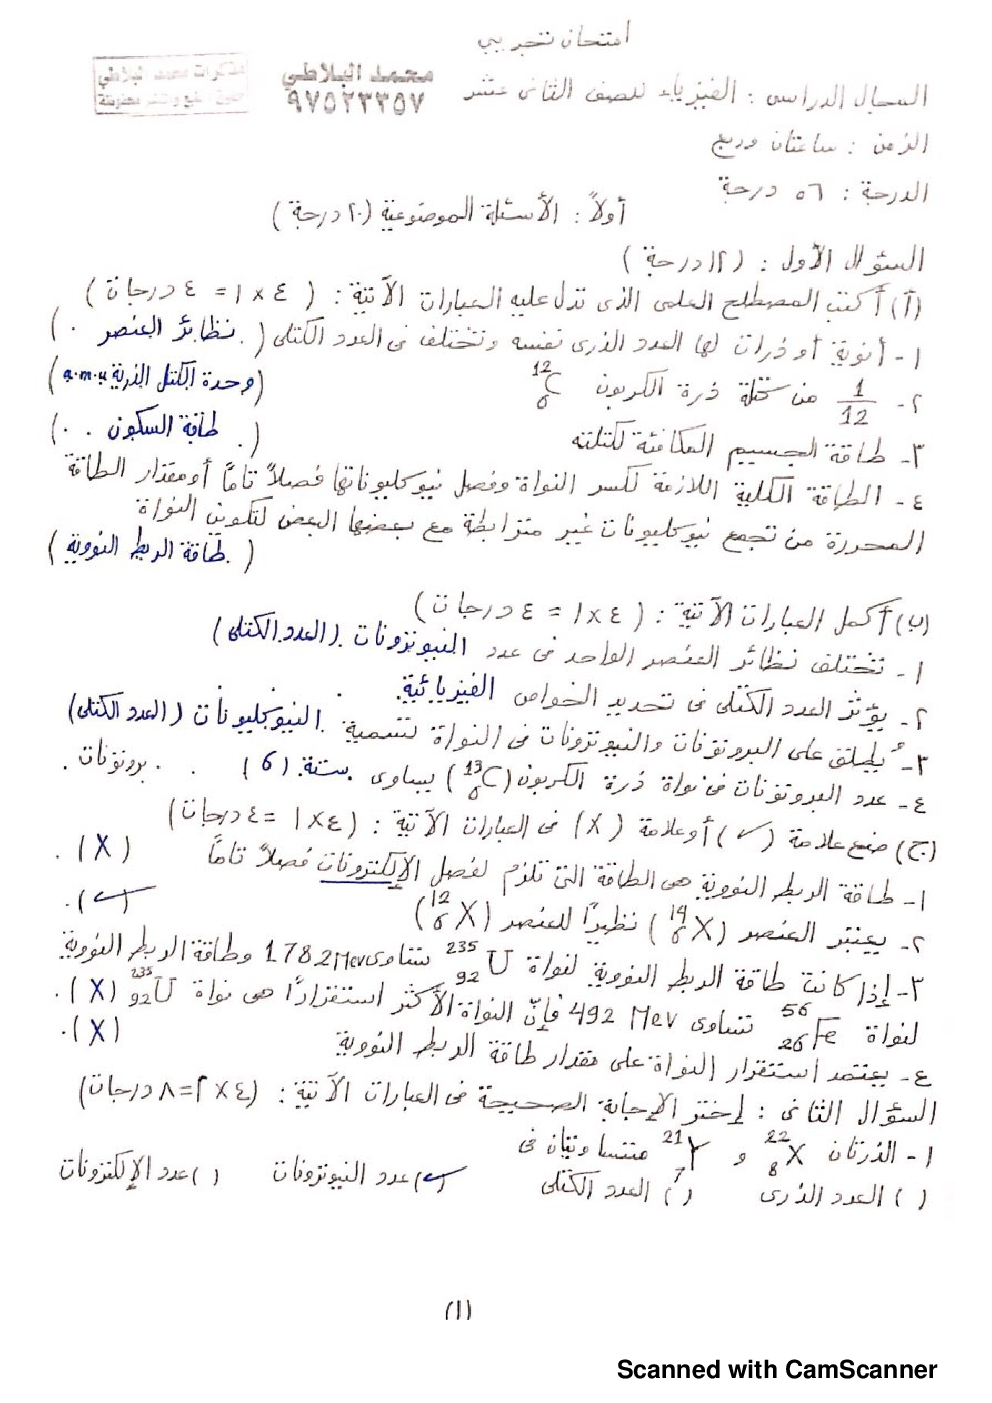 امتحان تجريبي
مذكرات محمد البلاطي
محمد البلاطي
٩٧٥٢٣٣٥٧
حقوق الطبع والنشر محفوظة
المجال الدراسى : الفيزياء للصف الثانى عشر
الزمن : ساعتان وربع
الدرجة : ٥٦ درجة
أولاً : الأسئلة الموضوعية (٢٠ درجة)
السؤال الأول : (١٢ درجة)
(أ) أكتب المصطلح العلمى الذى تدل عليه العبارات الآتية : (٤ × ١ = ٤ درجات)
١- أنوية أو ذرات لها العدد الذرى نفسه وتختلف فى العدد الكتلى (نظائر العنصر)
٢- 1/12 من كتلة ذرة الكربون ¹²₆C (وحدة الكتل الذرية a.m.u)
٣- طاقة الجسيم المكافئة لكتلته (طاقة السكون)
٤- الطاقة الكلية اللازمة لكسر النواة وفصل نيوكليوناتها فصلاً تاماً أو مقدار الطاقة
المحررة من تجمع نيوكليونات غير مترابطة مع بعضها البعض لتكوين النواة
(طاقة الربط النووية)
(ب) أكمل العبارات الآتية : (٤ × ١ = ٤ درجات)
١- تختلف نظائر العنصر الواحد فى عدد النيوترونات (العدد الكتلى)
٢- يؤثر العدد الكتلى فى تحديد الخواص الفيزيائية.
٣- يُطلق على البروتونات والنيوترونات فى النواة تسمية النيوكليونات (العدد الكتلى)
٤- عدد البروتونات فى نواة ذرة الكربون (¹³₆C) يساوى ستة (6) بروتونات .
(ج) ضع علامة (✓) أو علامة (X) فى العبارات الآتية : (٤ × ١ = ٤ درجات)
١- طاقة الربط النووية هى الطاقة التى تلزم لفصل الإلكترونات فصلاً تاماً (X) .
٢- يعتبر العنصر (¹⁴₆X) نظيرًا للعنصر (¹²₆X) (✓).
٣- إذا كانت طاقة الربط النووية لنواة ²³⁵₉₂U تساوى 1782 Mev وطاقة الربط النووية
لنواة ⁵⁶₂₆Fe تساوى 492 Mev فإنّ النواة الأكثر استقرارًا هى نواة ²³⁵₉₂U (X) .
٤- يعتمد استقرار النواة على مقدار طاقة الربط النووية (X).
السؤال الثانى : إختر الإجابة الصحيحة فى العبارات الآتية : (٤ × ٢ = ٨ درجات)
١- الذرتان ²²₈X و ²¹₇Y متساويتان فى
( ) العدد الذرى ( ) العدد الكتلى (✓) عدد النيوترونات ( ) عدد الإلكترونات
(١)
Scanned with CamScanner